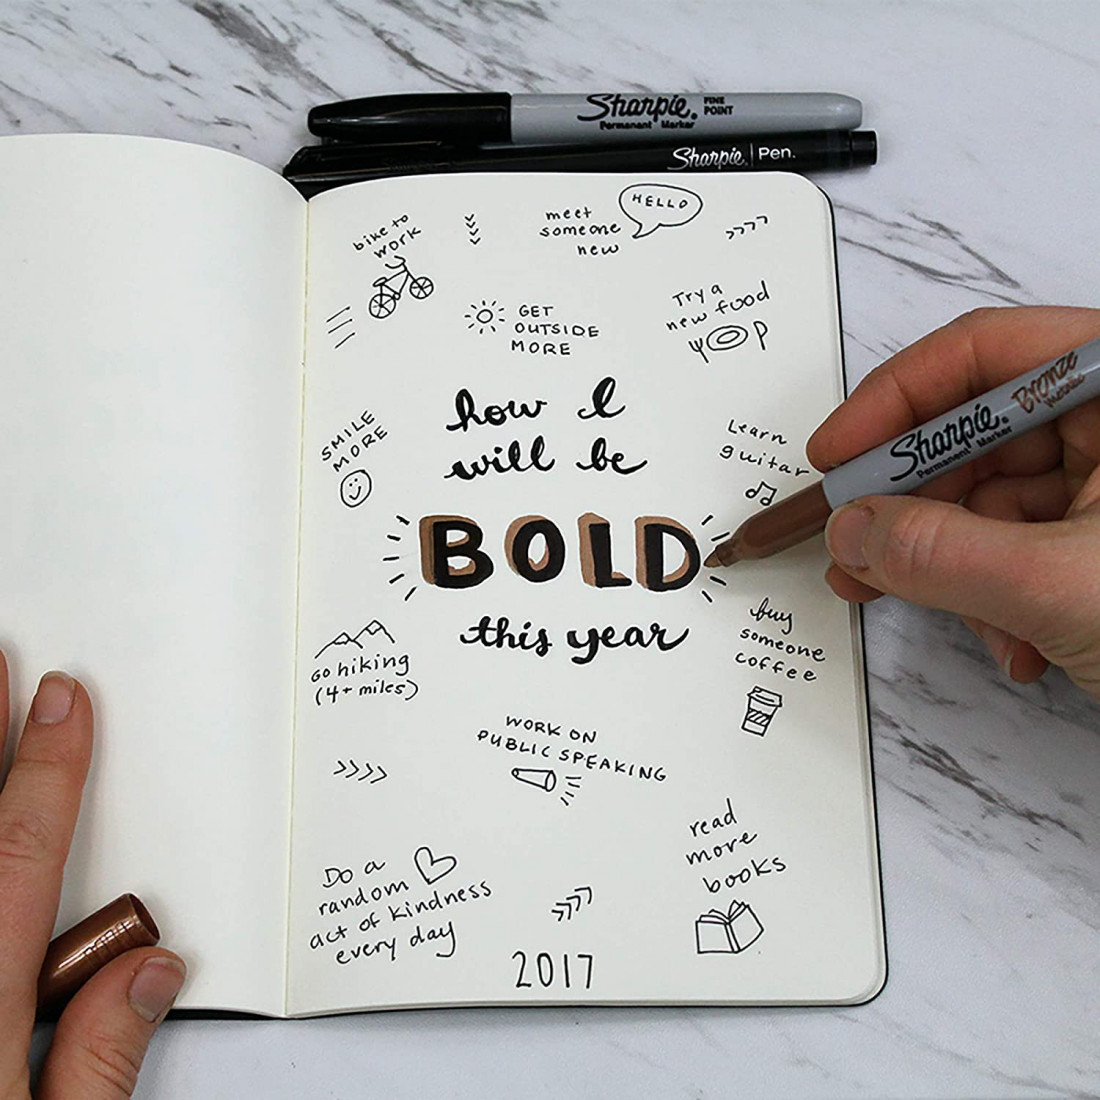 Sharpie. FINE POINT
Permanent Marker
Sharpie. Pen.
HELLO
bike to
WORK
meet
someone
new
Try a
new food
GET
OUTSIDE
MORE
how I
will be
BOLD
this year
SMILE
MORE
Learn
guitar
Sharpie.
Permanent Marker
Bronze
Metallic
buy
someone
coffee
go hiking
(4+ miles)
WORK ON
PUBLIC SPEAKING
read
more
books
Do a
random
act of kindness
every day
2017